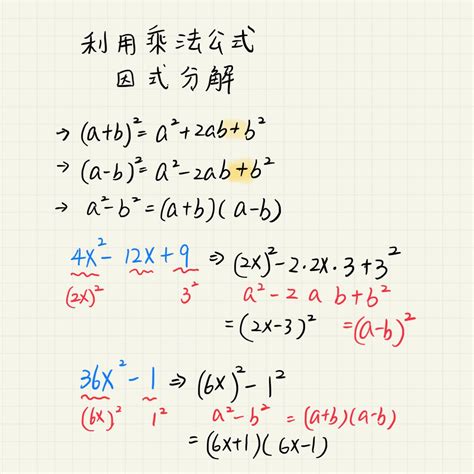 利用乘法公式
因式分解
→ (a+b)² = a²+2ab+b²
→ (a-b)² = a²-2ab+b²
→ a²-b² = (a+b)(a-b)
4x² - 12x + 9 ⇒ (2x)²-2·2x·3+3²
(2x)² 3² a²-2 a b+b²
= (2x-3)² =(a-b)²
36x² - 1 ⇒ (6x)² - 1²
(6x)² 1² a²-b² = (a+b)(a-b)
= (6x+1)(6x-1)